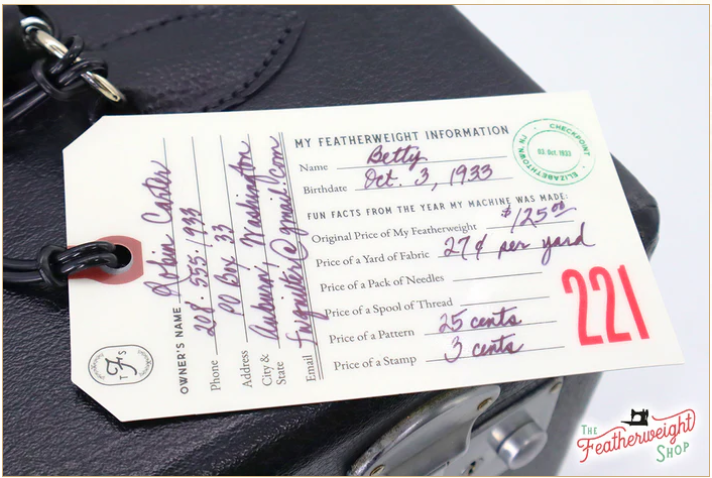 MY FEATHERWEIGHT INFORMATION
Name Betty
Birthdate Oct. 3, 1933
FUN FACTS FROM THE YEAR MY MACHINE WAS MADE:
Original Price of My Featherweight $125.00
Price of a Yard of Fabric 27¢ per yard
Price of a Pack of Needles
Price of a Spool of Thread
Price of a Pattern 25 cents
Price of a Stamp 3 cents
221
CHECKPOINT
03 Oct. 1933
ELIZABETHTOWN, NJ
OWNER'S NAME Robin Carter
Phone 208. 555. 1933
Address PO Box 33
City & State Auburn, Washington
Email @gmail.com
T F S
THE
Featherweight
SHOP